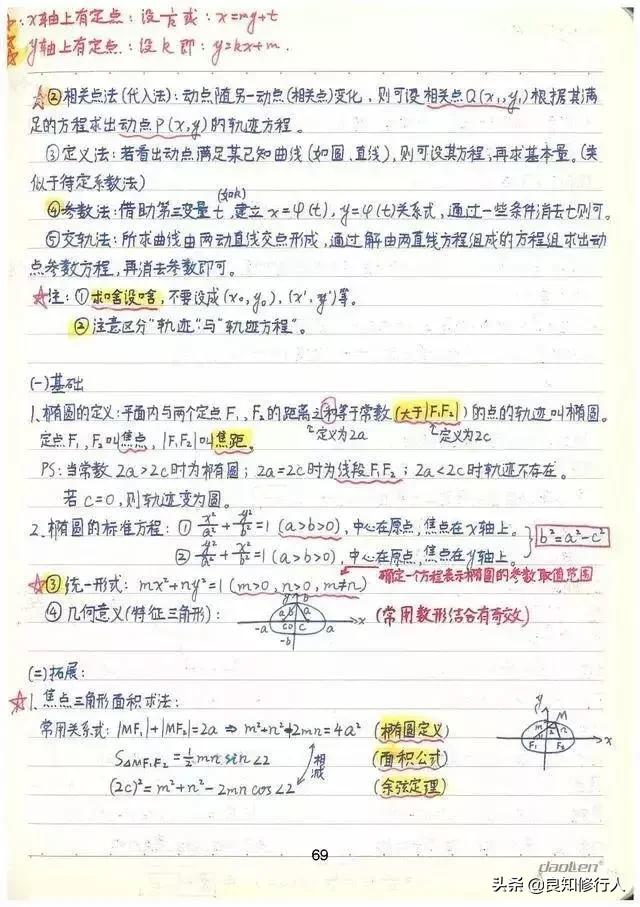 x轴上有定点：设 1/k 或：x=my+t
y轴上有定点：设 k 即：y=kx+m.
☆②相关点法(代入法)：动点随另一动点(相关点)变化，则可设相关点Q(x₁,y₁)根据其满
足的方程求出动点P(x,y)的轨迹方程。
③定义法：若看出动点满足某已知曲线(如圆、直线)，则可设其方程，再求基本量。(类
似于待定系数法)
④参数法：借助第三变量t(如k)，建立x=φ(t)，y=φ(t)关系式，通过一些条件消去t则可。
⑤交轨法：所求曲线由两动直线交点形成，通过解由两直线方程组成的方程组求出动
点参数方程，再消去参数即可。
☆注：①求啥设啥，不要设成(x₀,y₀)，(x',y')等。
②注意区分“轨迹”与“轨迹方程”。
(一)基础
1、椭圆的定义：平面内与两个定点F₁、F₂的距离之和等于常数(大于|F₁F₂|)的点的轨迹叫椭圆。
定点F₁、F₂叫焦点，|F₁F₂|叫焦距。
定义为2a
定义为2c
PS：当常数2a>2c时为椭圆；2a=2c时为线段F₁F₂；2a<2c时轨迹不存在。
若c=0，则轨迹变为圆。
2、椭圆的标准方程：① x²/a²+y²/b²=1 (a>b>0)，中心在原点，焦点在x轴上。
② y²/a²+x²/b²=1 (a>b>0)，中心在原点，焦点在y轴上。
b²=a²-c²
☆③统一形式：mx²+ny²=1 (m>0,n>0,m≠n)
确定一个方程表示椭圆的参数取值范围
④几何意义(特征三角形)：
y
b
a
a
-a
c
O
c
a
x
-b
(常用数形结合有奇效)
(二)拓展：
☆1、焦点三角形面积求法：
常用关系式：|MF₁|+|MF₂|=2a ⇒ m²+n²+2mn=4a² (椭圆定义)
S△MF₁F₂=½mn sin∠2 (面积公式)
(2c)²=m²+n²-2mn cos∠2 (余弦定理)
相减
y
M
m
2
n
F₁
F₂
x
69
daolien®
头条 @良知修行人